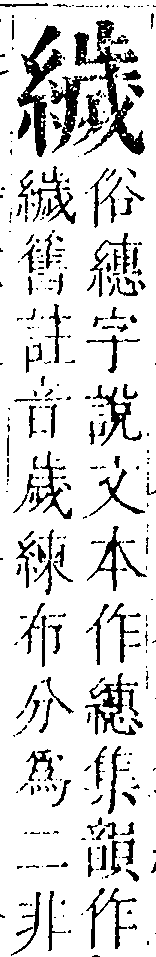 俗繐字說文本作繐集韻作
舊註音歲練布分爲二非